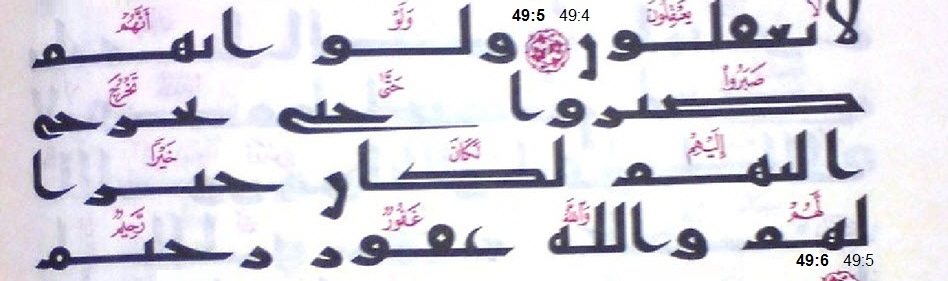 لا يعقلون 49:5 49:4 ولو انهم
لا يَعْقِلُونَ وَلَوْ أَنَّهُمْ
صبروا حتى تخرج
صَبَرُوا حَتَّىٰ تَخْرُجَ
اليهم لكان خيرا
إِلَيْهِمْ لَكَانَ خَيْرًا
لهم والله غفور رحيم
لَهُمْ وَاللَّهُ غَفُورٌ رَحِيمٌ
49:6 49:5